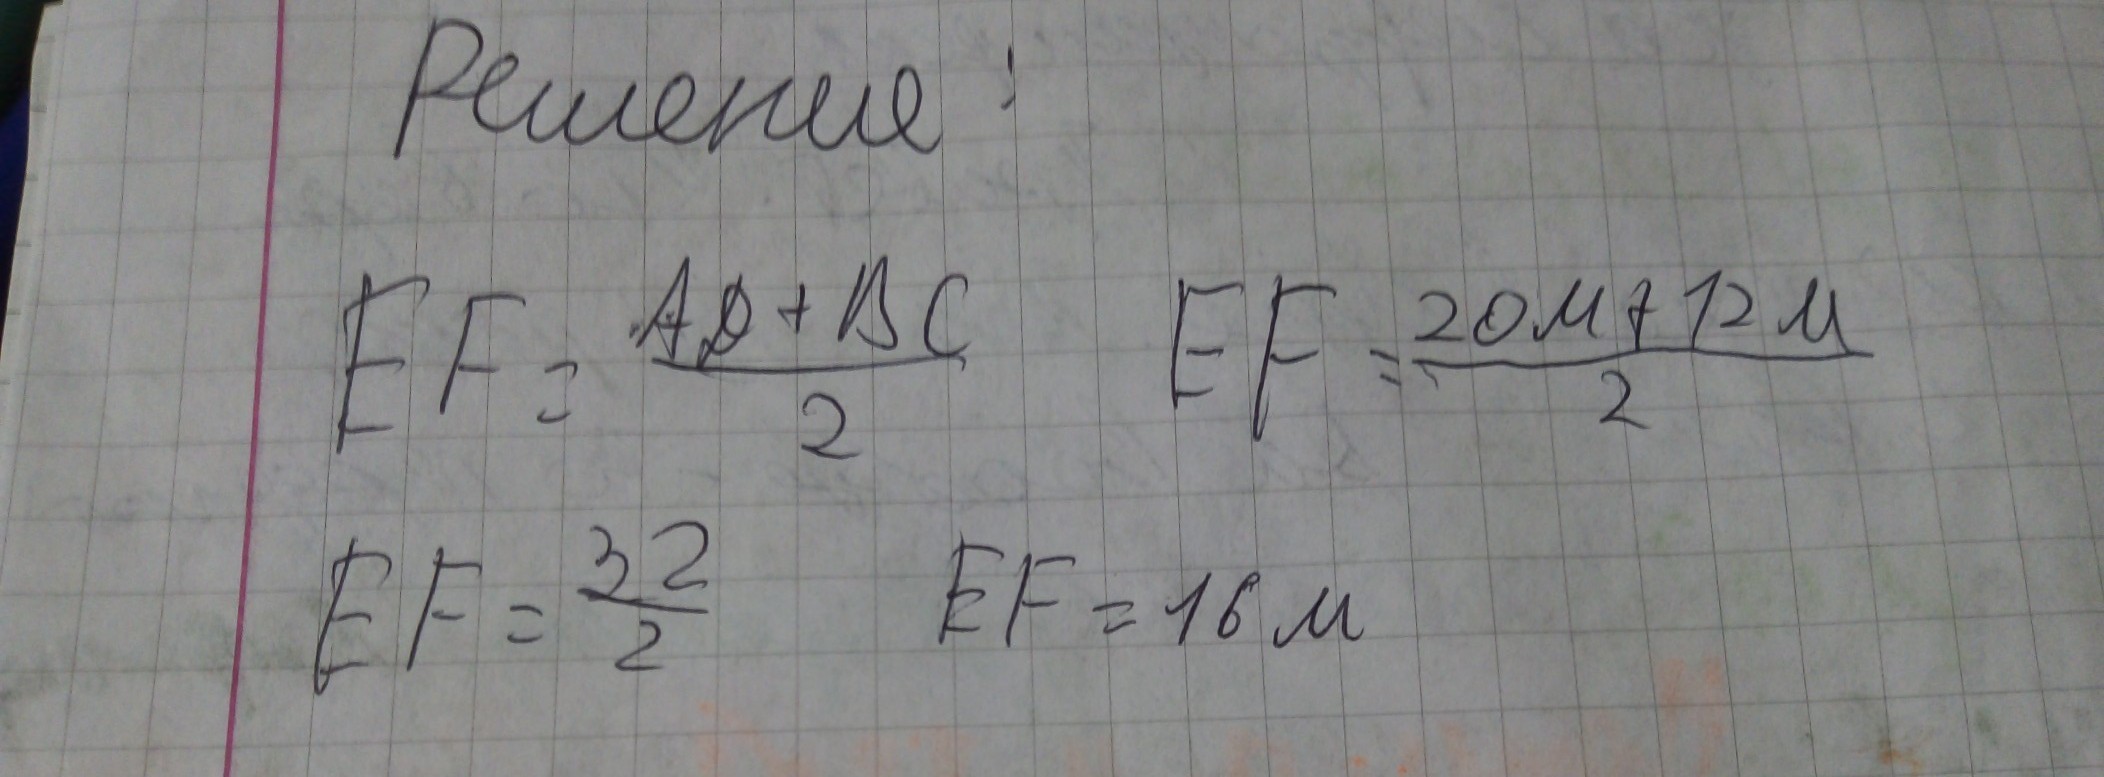 Решение:
EF = AD + BC / 2 EF = 20м + 12м / 2
EF = 32 / 2 EF = 16 м